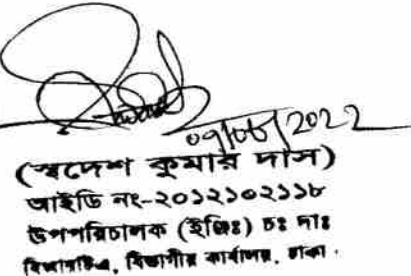 ০৭/০৮/2022
(স্বদেশ কুমার দাস)
আইডি নং-২০১২১০২১১৮
উপপরিচালক (ইঞ্জিঃ) চঃ দাঃ
বিআরটিএ, বিভাগীয় কার্যালয়, ঢাকা।